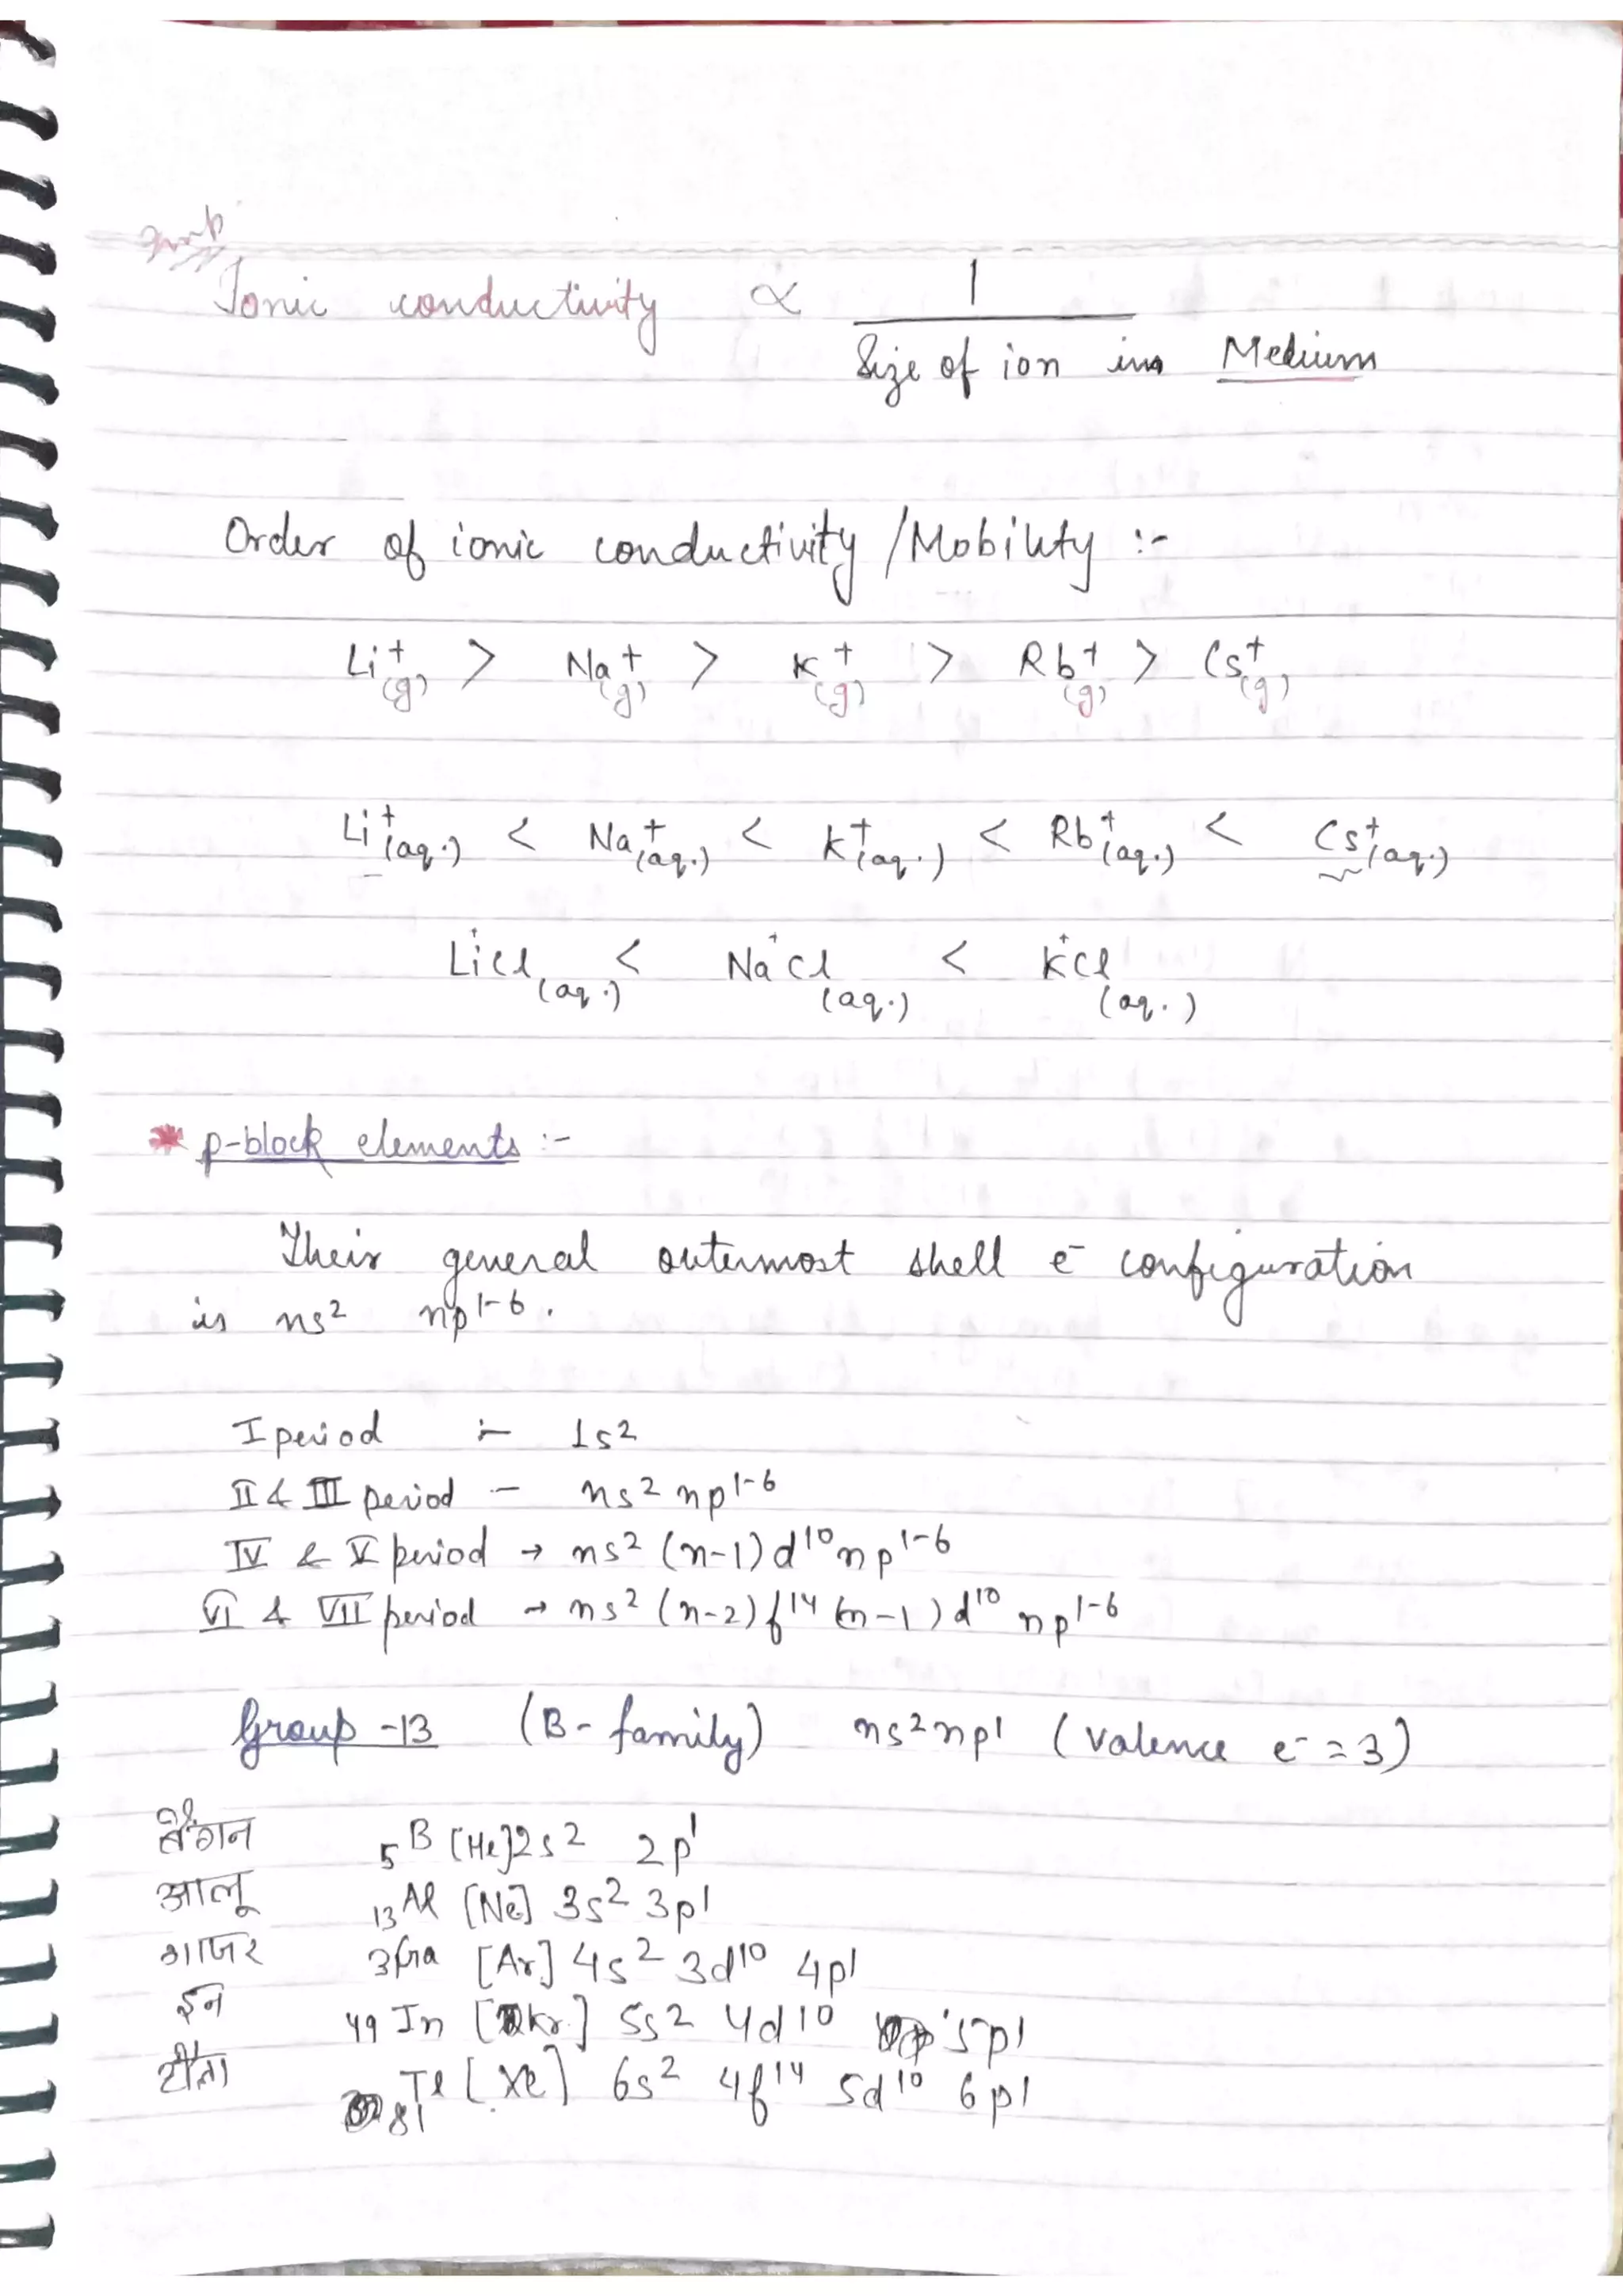 Imp
Ionic conductivity ∝ 1 / Size of ion in Medium
Order of ionic conductivity /Mobility :-
Li⁺(g) > Na⁺(g) > K⁺(g) > Rb⁺(g) > Cs⁺(g)
Li⁺(aq.) < Na⁺(aq.) < K⁺(aq.) < Rb⁺(aq.) < Cs⁺(aq.)
Li⁺Cl(aq.) < Na⁺Cl(aq.) < K⁺Cl(aq.)
* p-block elements :-
Their general outermost shell e⁻ configuration
is ns² np¹⁻⁶.
I period :- 1s²
II & III period - ns² np¹⁻⁶
IV & V period → ns² (n-1)d¹⁰ np¹⁻⁶
VI & VII period → ns² (n-2)f¹⁴ (n-1)d¹⁰ np¹⁻⁶
Group -13 (B-family) ns² np¹ (Valence e⁻ = 3)
बैंगन ₅B [He]2s² 2p¹
आलू ₁₃Al [Ne] 3s² 3p¹
गाजर ₃₁Ga [Ar] 4s² 3d¹⁰ 4p¹
इन ₄₉In [Kr] 5s² 4d¹⁰ 5p¹
₈₁Tl [Xe] 6s² 4f¹⁴ 5d¹⁰ 6p¹